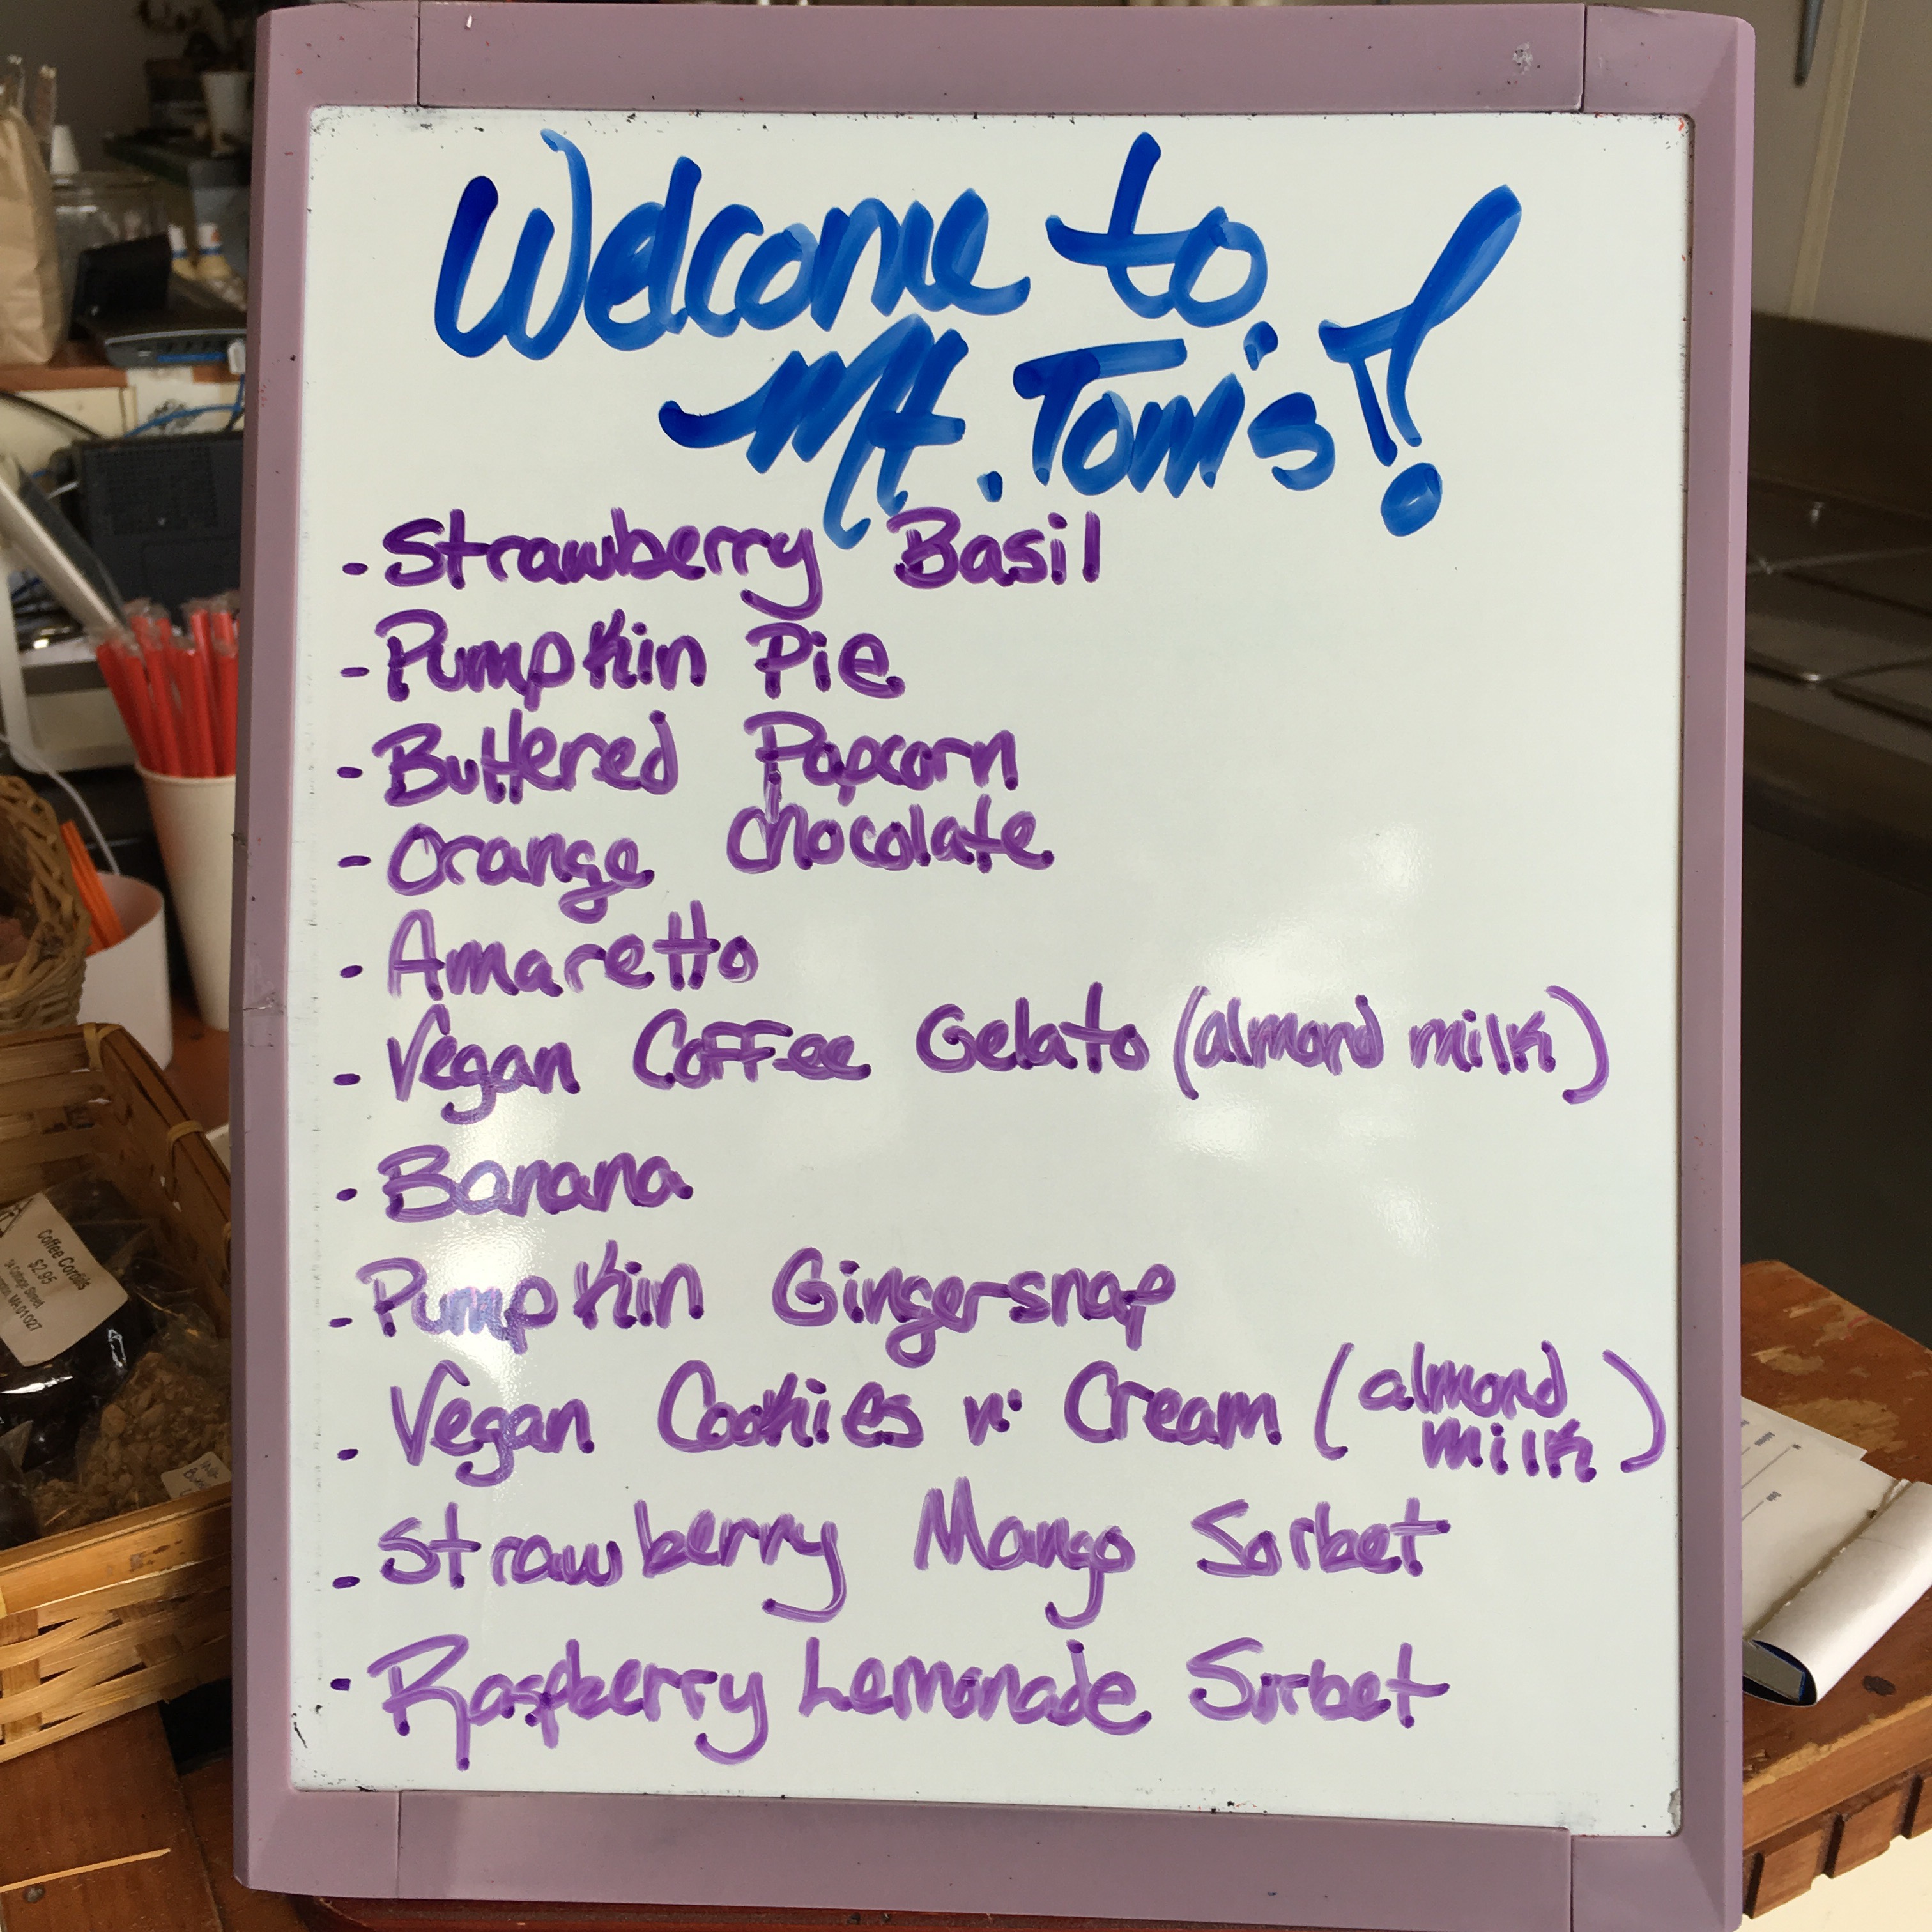 Welcome to
Mt. Tom's!
- Strawberry Basil
- Pumpkin Pie
- Buttered Popcorn
- Orange Chocolate
- Amaretto
- Vegan Coffee Gelato (almond milk)
- Banana
- Pumpkin Gingersnap
- Vegan Cookies n' Cream (almond
milk)
- Strawberry Mango Sorbet
- Raspberry Lemonade Sorbet
Coffee Cordials
$2.95
34 Cottage Street
MA 01027